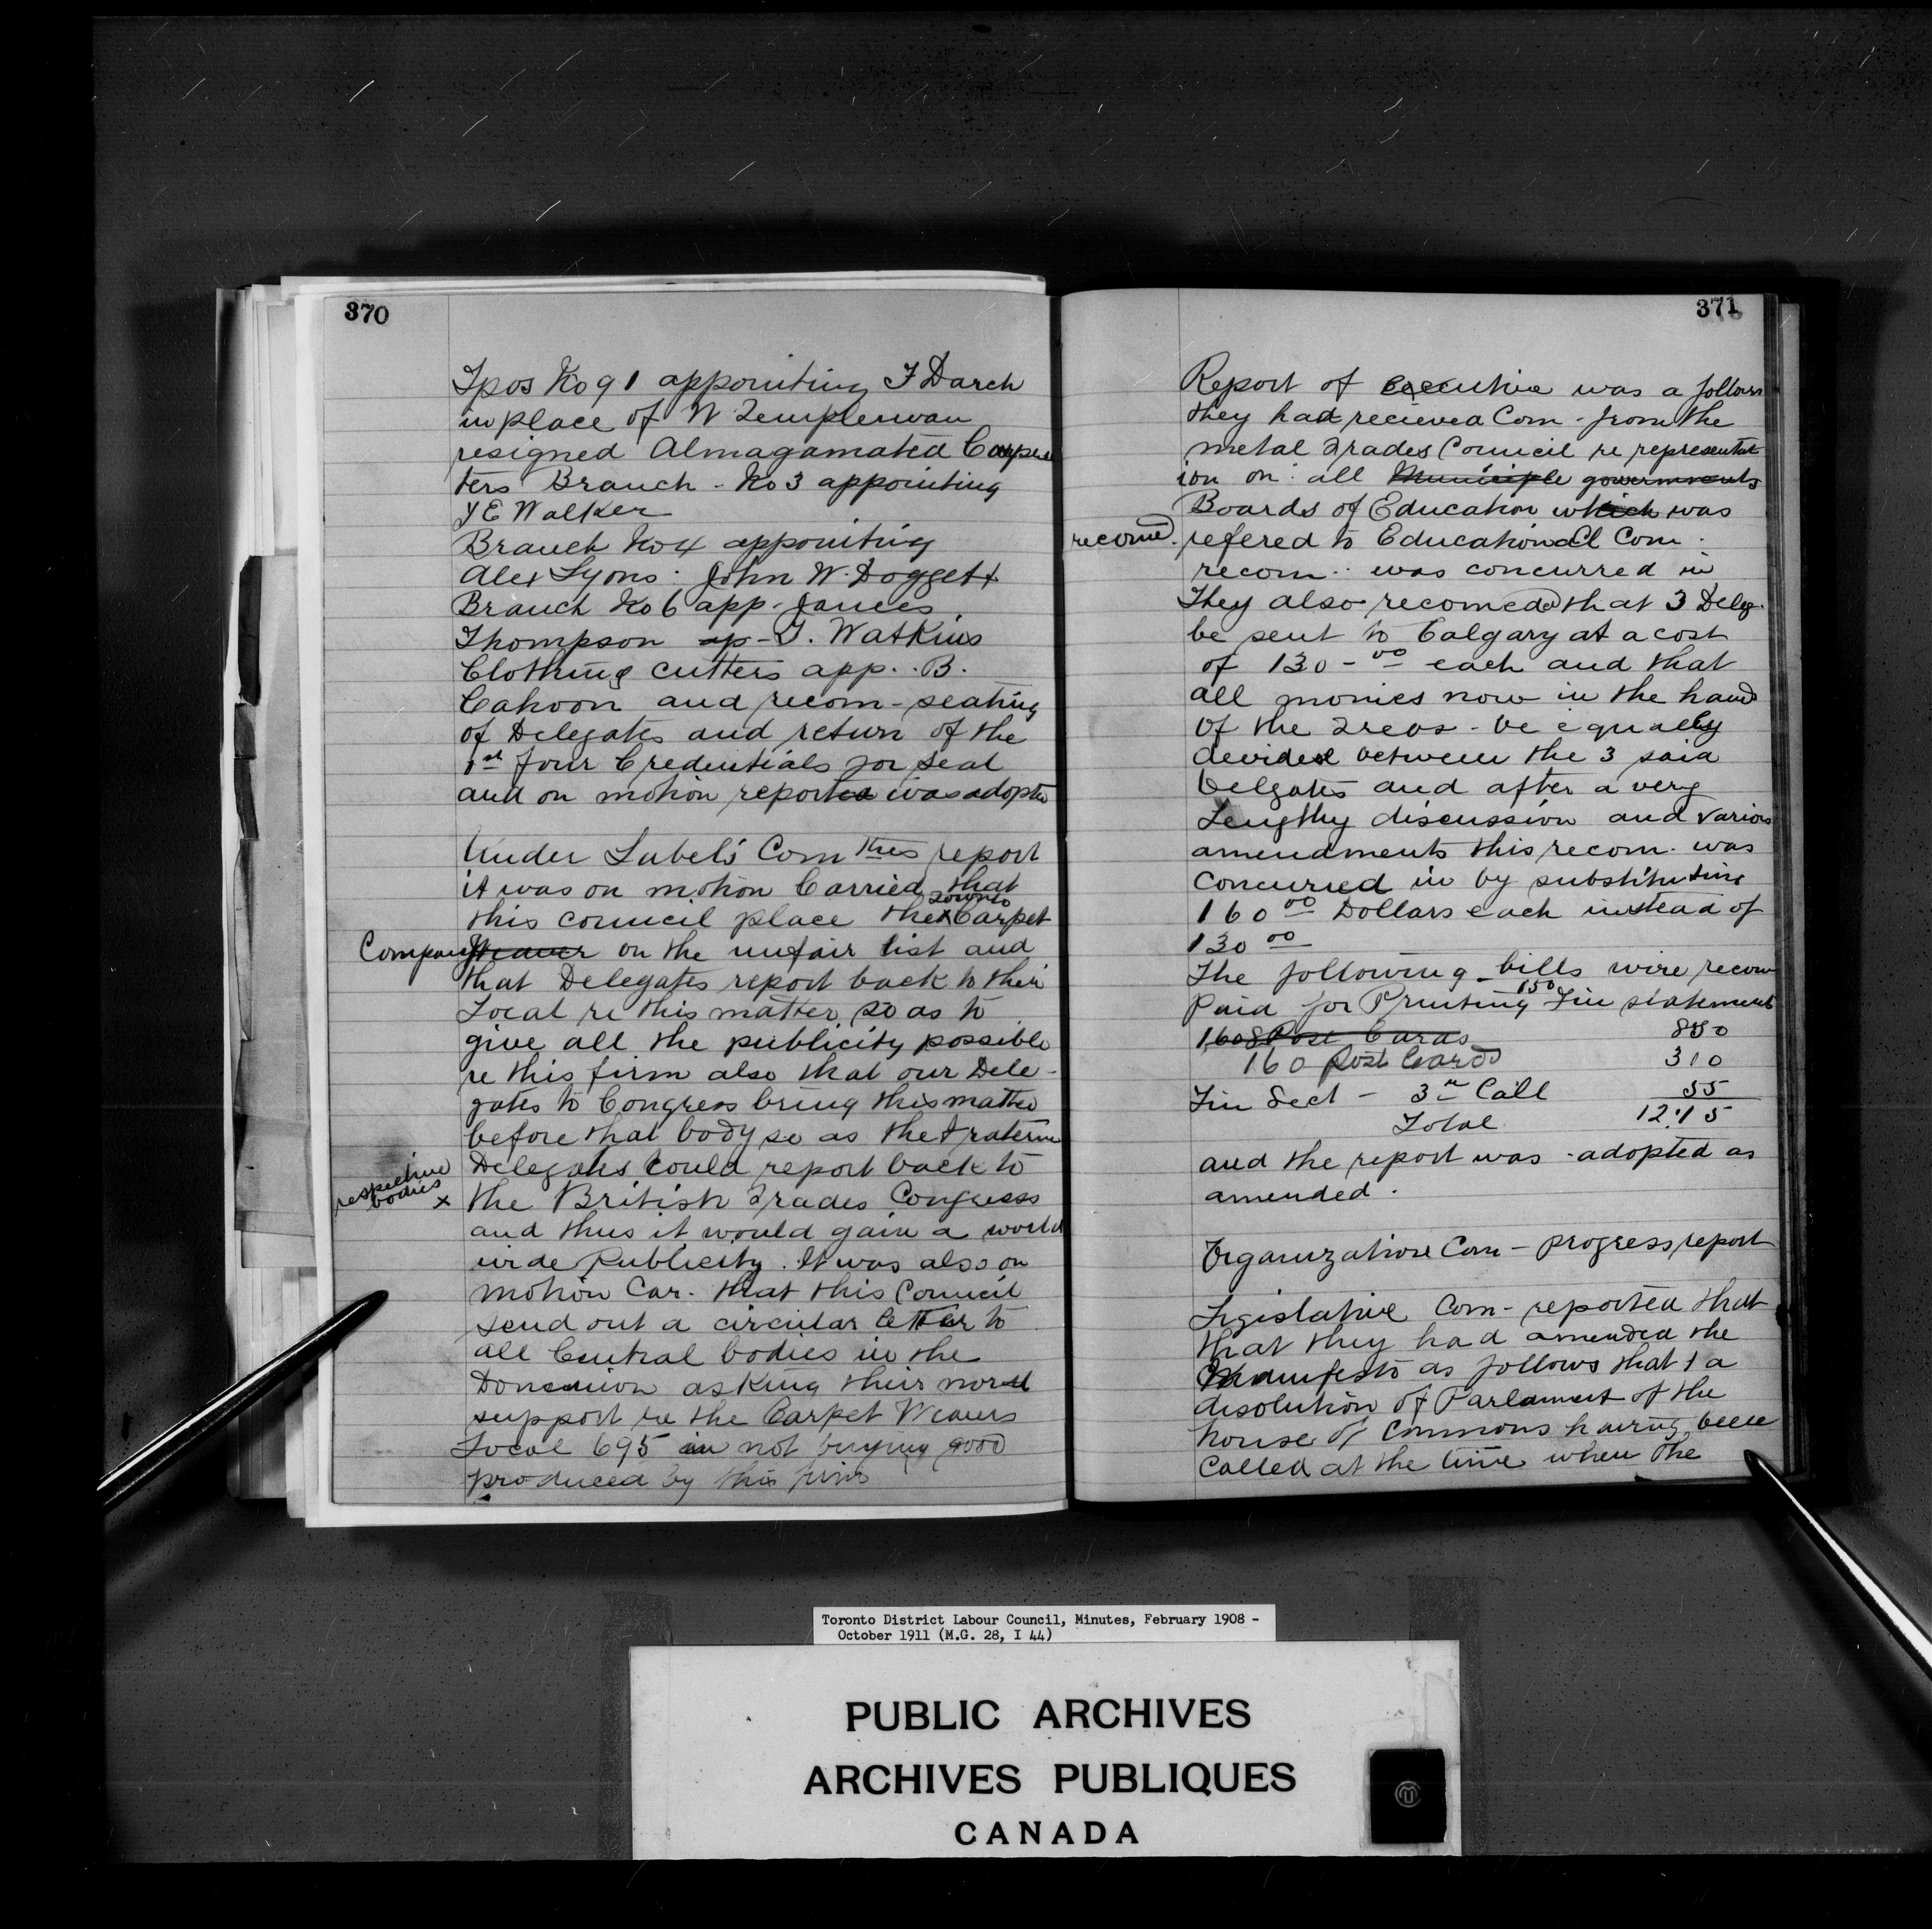 370
Typos No 91 appointing F Darch
in place of W Templeman
resigned Almagamated Carpen
ters Branch - No 3 appointing
J E Walker
Branch No 4 appointing
Alex Lyons : John W. Doggett
Branch No 6 app - James
Thompson ap - T. Watkins
Clothing cutters app. . B.
Cahoon and recom - seating
of Delegates and return of the
1st four Credentials for seal
and on motion reported was adopted
Under Labels Com report
it was on motion Carried that
Toronto
this council place the x Carpet
Company Weaver on the unfair list and
that Delegates report back to their
Local re this matter so as to
give all the publicity possible
re this firm also that our Dele-
gates to Congress bring this matter
before that body so as the Fraternal
Delegates could report back to
respective
bodies x
the British Trades Congress
and thus it would gain a world
wide Publicity. It was also on
motion Car. that this Council
send out a circular letter to
all Central bodies in the
Dominion asking their moral
support re the Carpet Weavers
Local 695 in not buying good
produced by this firm
371
Report of executive was a follows
they had recieved Com - from the
metal Trades Council re representat
ion on all Municiple governments
Boards of Education which was
recomd. refered to Educational Com.
recom. was concurred in
They also recomeded that 3 Deleg.
be sent to Calgary at a cost
of 130 - 00 each and that
all monies now in the hand
of the Treas - be equally
devided between the 3 said
Delgates and after a very
Lengthy discussion and various
amendments this recom. was
concurred in by substituting
160 00 Dollars each instead of
130 00
The following bills wire recom
150
Paid for Printing Fin statement
160 Post Cards 850
160 Post Cards 310
Fin Sect - 3rd Call 55
Total 12.15
and the report was adopted as
amended.
Organization Com - progress report
Legislative Com - reported that
that they had amended the
Manifesto as follows that a
disolution of Parlament of the
house of Commons having been
Called at the time when the
Toronto District Labour Council, Minutes, February 1908 -
October 1911 (M.G. 28, I 44)
PUBLIC ARCHIVES
ARCHIVES PUBLIQUES
CANADA